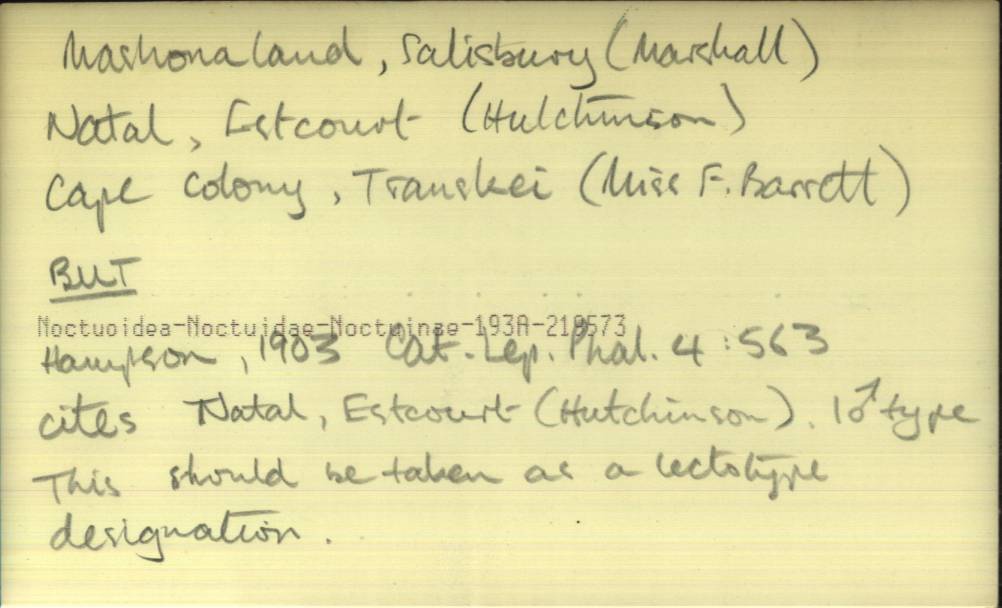 Mashonaland, Salisbury (Marshall)
Natal, Estcourt (Hutchinson)
Cape Colony, Transkei (Miss F. Barrett)
BUT
Noctuoidea-Noctuidae-Noctuinae-193A-219573
Hampson, 1903 Cat. Lep. Phal. 4 : 563
cites Natal, Estcourt (Hutchinson). 1♂ type
This should be taken as a lectotype
designation.